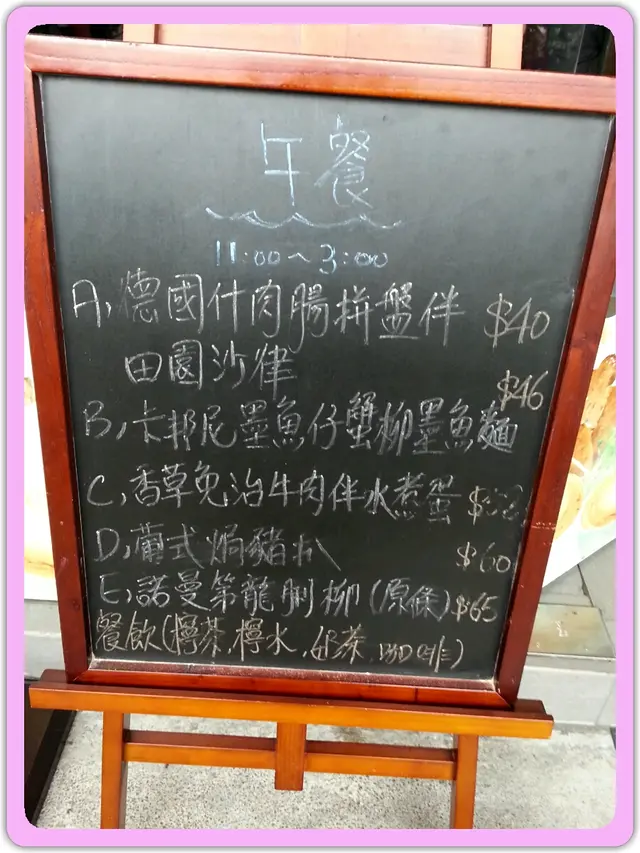 午餐
11:00～3:00
A,德國什肉腸拼盤伴 $40
田園沙律
$46
B,卡邦尼墨魚仔蟹柳墨魚麵
C,香草免治牛肉伴水煮蛋
D,葡式焗豬扒 $60
E,諾曼第龍脷柳(原條)$65
餐飲(檸茶,檸水,奶茶,咖啡)